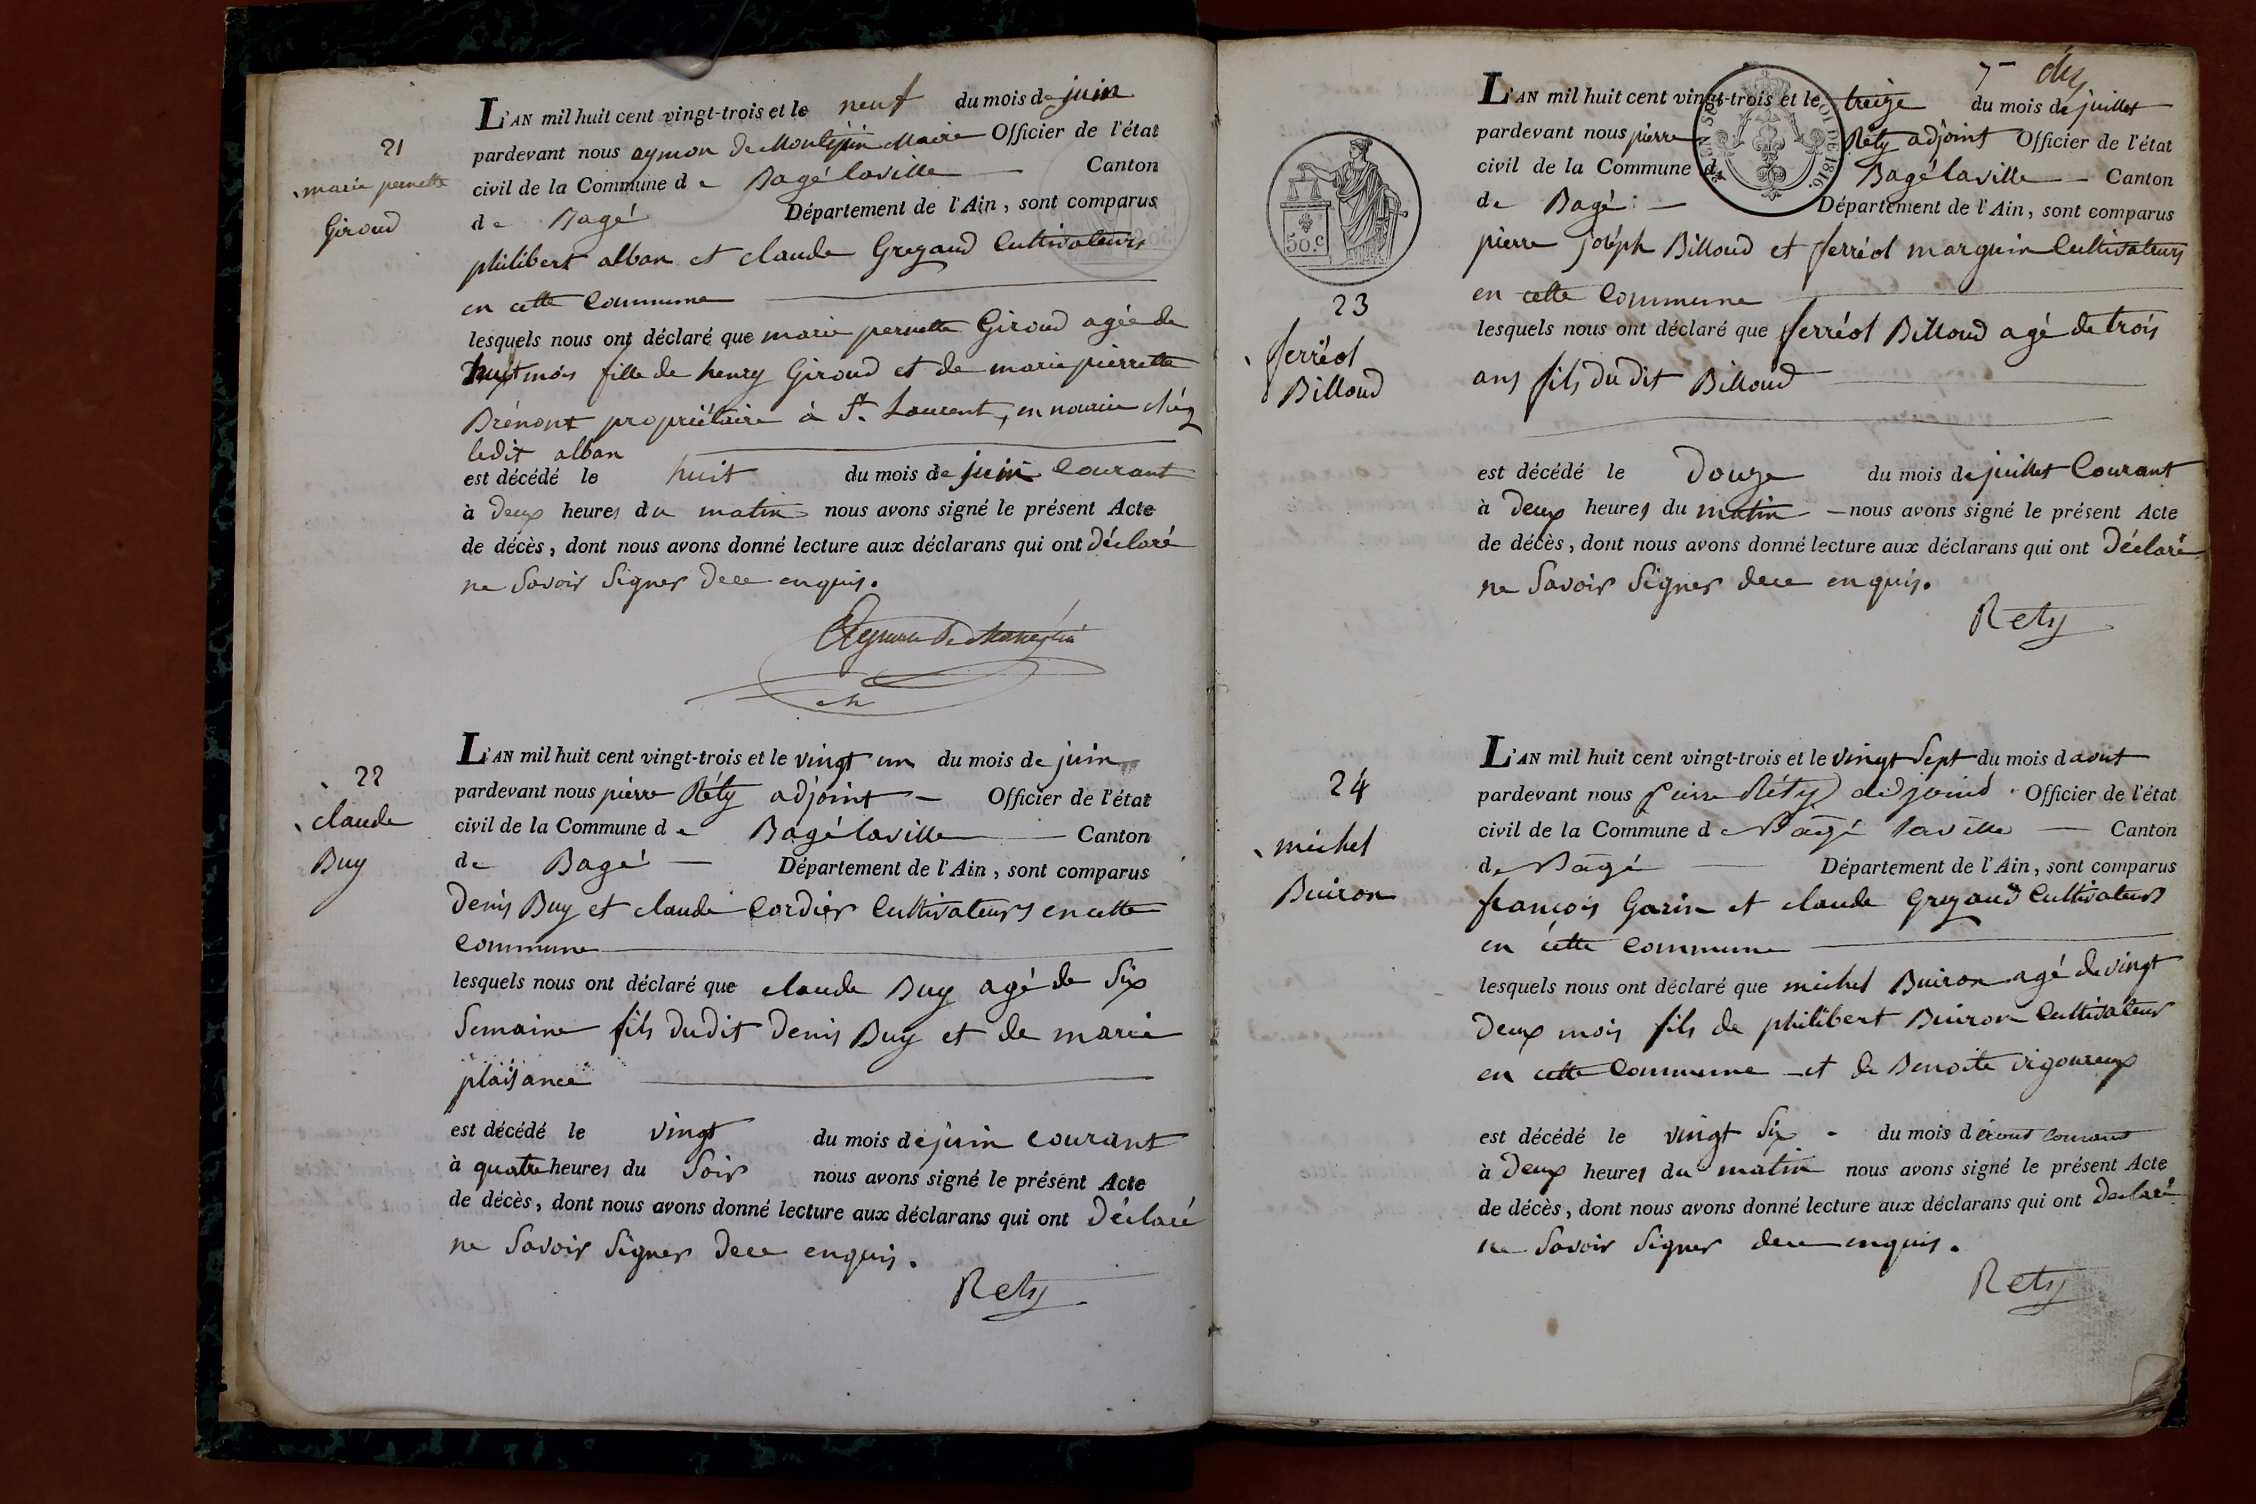 21
marie pernette
Giroud
L'AN mil huit cent vingt-trois et le neuf du mois de juin
pardevant nous aymon de Montépin Maire Officier de l'état
civil de la Commune de Bagé laville Canton
de Bagé Département de l'Ain, sont comparus
philibert alban et claude Gregaud Cultivateurs
en cette Commune
lesquels nous ont déclaré que marie pernette Giroud agée de
huit mois fille de henry Giroud et de marie pierrette
Brénont propriétaire à St. Laurent, en nourice chéz
ledit alban
est décédé le huit du mois de juin Courant
à deux heures du matin nous avons signé le présent Acte
de décès, dont nous avons donné lecture aux déclarans qui ont déclaré
ne Savoir Signer de ce enquis.
22
claude
Buy
L'AN mil huit cent vingt-trois et le vingt un du mois de juin
pardevant nous pierre Réty adjoint Officier de l'état
civil de la Commune de Bagé laville Canton
de Bagé Département de l'Ain, sont comparus
Denis Buy et claude Cordier Cultivateurs en cette
Commune
lesquels nous ont déclaré que claude Buy agé de Six
Semaine fils dudit Denis Buy et de marie
plaisance
est décédé le vingt du mois de juin courant
à quatre heures du Soir nous avons signé le présent Acte
de décès, dont nous avons donné lecture aux déclarans qui ont Déclaré
ne Savoir Signer de ce enquis.
Rety
50.c
23
ferréol
Billoud
L'AN mil huit cent vingt-trois et le treize du mois de juillet
pardevant nous pierre Réty adjoint Officier de l'état
civil de la Commune de Bagé laville Canton
de Bagé Département de l'Ain, sont comparus
pierre joséph Billoud et ferréol marguin Cultivateurs
en cette Commune
lesquels nous ont déclaré que ferréol Billoud agé de trois
ans fils dudit Billoud
est décédé le Douze du mois de juillet Courant
à Deux heures du matin nous avons signé le présent Acte
de décès, dont nous avons donné lecture aux déclarans qui ont Déclaré
ne Savoir Signer de ce enquis.
Rety
24
michel
Buiron
L'AN mil huit cent vingt-trois et le vingt Sept du mois d aout
pardevant nous pierre Réty adjoind Officier de l'état
civil de la Commune de Bagé laville Canton
de Bagé Département de l'Ain, sont comparus
françois Garin et claude Gregaud Cultivateurs
en cette Commune
lesquels nous ont déclaré que michel Buiron agé de vingt
Deux mois fils de philibert Buiron Cultivateur
en cette Commune et de Benoite vigoureux
est décédé le vingt Six du mois d aout courant
à Deux heures du matin nous avons signé le présent Acte
de décès, dont nous avons donné lecture aux déclarans qui ont declaré
ne Savoir Signer de ce enquis.
Rety